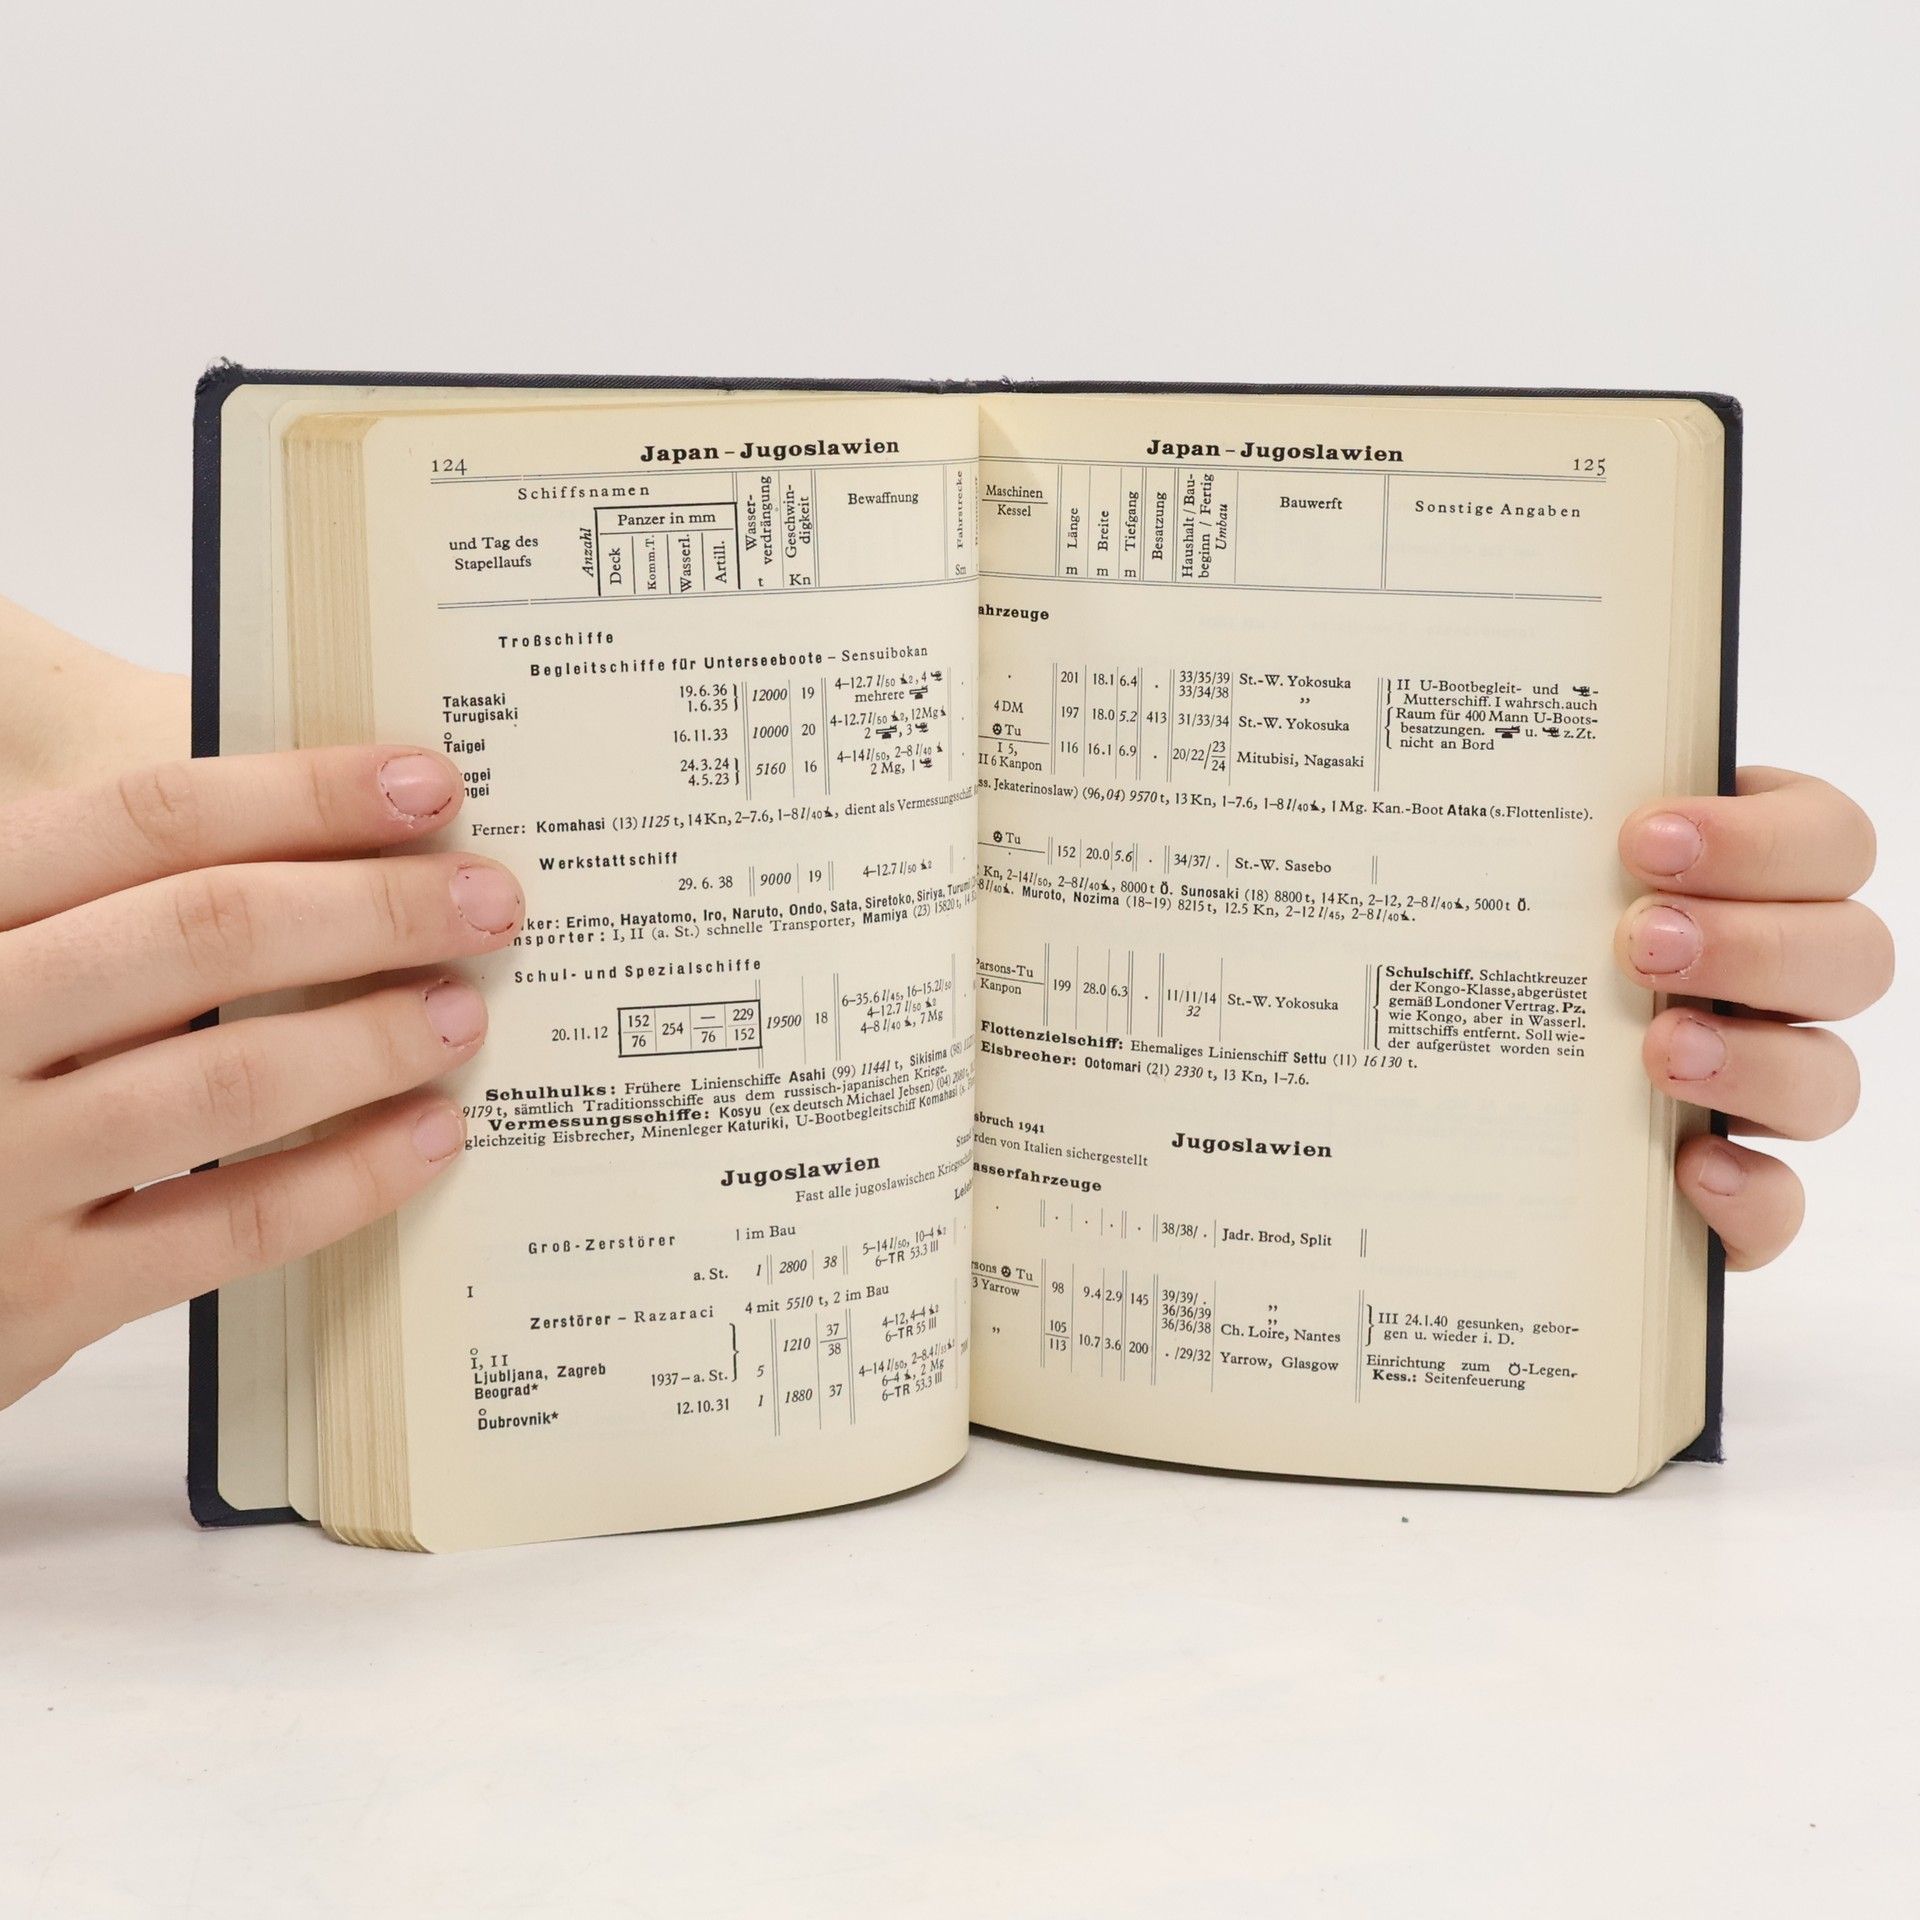 124
Japan – Jugoslawien
Schiffsnamen
und Tag des
Stapellaufs
Anzahl
Panzer in mm
Deck
Komm.T.
Wasserl.
Artill.
Wasser-
verdrängung
t
Geschwin-
digkeit
Kn
Bewaffnung
Fahrstrecke
Sm
Troßschiffe
Begleitschiffe für Unterseeboote – Sensuibokan
Takasaki 19.6.36
Turugisaki 1.6.35 12000 19 4–12.7 l/50 2, 4
mehrere
Taigei 16.11.33 10000 20 4-12.7 l/50 2, 12Mg
2 , 3
ogei 24.3.24
ngei 4.5.23 5160 16 4–14 l/50, 2–8 l/40
2 Mg, 1
Ferner: Komahasi (13) 1125 t, 14 Kn, 2–7.6, 1–8 l/40, dient als Vermessungsschiff
Werkstattschiff
29. 6. 38 9000 19 4–12.7 l/50 2
ker: Erimo, Hayatomo, Iro, Naruto, Ondo, Sata, Siretoko, Siriya,
nsporter: I, II (a. St.) schnelle Transporter, Mamiya (23) 15820 t,
Schul- und Spezialschiffe
20.11.12 152/76 254 —/76 229/152 19500 18 6–35.6 l/45, 16–15.2 l/50
4–12.7 l/50 2
4–8 l/40, 7 Mg
Schulhulks: Frühere Linienschiffe Asahi (99) 11441 t, Sikisima (98)
9179 t, sämtlich Traditionsschiffe aus dem russisch-japanischen Kriege.
Vermessungsschiffe: Kosyu (ex deutsch Michael Jebsen) (04) 2080 t,
gleichzeitig Eisbrecher, Minenleger Katuriki, U-Bootbegleitschiff Komahasi (s.
Jugoslawien
Fast alle jugoslawischen
Groß-Zerstörer 1 im Bau
I a. St. 1 2800 38 5–14 l/50, 10–4 2
6–TR 53.3 III
Zerstörer – Razaraci 4 mit 5510 t, 2 im Bau
I, II
Ljubljana, Zagreb
Beograd* 1937–a. St. 5 1210 37/38 4–12, 4–4 2
6–TR 55 III
Dubrovnik* 12.10.31 1 1880 37 4–14 l/50, 2–8.4 l/
6–4, 2 Mg
6–TR 53.3 III
Japan – Jugoslawien
125
Maschinen
Kessel
Länge
m
Breite
m
Tiefgang
m
Besatzung
Haushalt / Bau-
beginn / Fertig
Umbau
Bauwerft
Sonstige Angaben
ahrzeuge
. 201 18.1 6.4 . 33/35/39 St.-W. Yokosuka
33/34/38 „
II U-Bootbegleit- und -
Mutterschiff. I wahrsch. auch
4 DM
Tu 197 18.0 5.2 413 31/33/34 St.-W. Yokosuka
Raum für 400 Mann U-Boots-
besatzungen. u. z.Zt.
nicht an Bord
I 5,
II 6 Kanpon 116 16.1 6.9 . 20/22/23/24 Mitubisi, Nagasaki
ss. Jekaterinoslaw) (96,04) 9570 t, 13 Kn, 1–7.6, 1–8 l/40, 1 Mg. Kan.-Boot Ataka (s. Flottenliste).
Tu
. 152 20.0 5.6 . 34/37/ . St.-W. Sasebo
Kn, 2–14 l/50, 2–8 l/40, 8000 t Ö. Sunosaki (18) 8800 t, 14 Kn, 2–12, 2–8 l/40, 5000 t Ö.
8 l/40. Muroto, Nozima (18–19) 8215 t, 12.5 Kn, 2–12 l/45, 2–8 l/40.
Parsons-Tu
Kanpon 199 28.0 6.3 . 11/11/14
32 St.-W. Yokosuka
Schulschiff. Schlachtkreuzer
der Kongo-Klasse, abgerüstet
gemäß Londoner Vertrag. Pz.
wie Kongo, aber in Wasserl.
mittschiffs entfernt. Soll wie-
der aufgerüstet worden sein
Flottenzielschiff: Ehemaliges Linienschiff Settu (11) 16130 t.
Eisbrecher: Ootomari (21) 2330 t, 13 Kn, 1–7.6.
sbruch 1941
Jugoslawien
rden von Italien sichergestellt
asserfahrzeuge
. . . . . 38/38/ . Jadr. Brod, Split
rsons Tu
3 Yarrow 98 9.4 2.9 145 39/39/ . „
36/36/39 „
36/36/38 Ch. Loire, Nantes
III 24.1.40 gesunken, gebor-
gen u. wieder i. D.
„ 105/113 10.7 3.6 200 . /29/32 Yarrow, Glasgow
Einrichtung zum -Legen,
Kess.: Seitenfeuerung